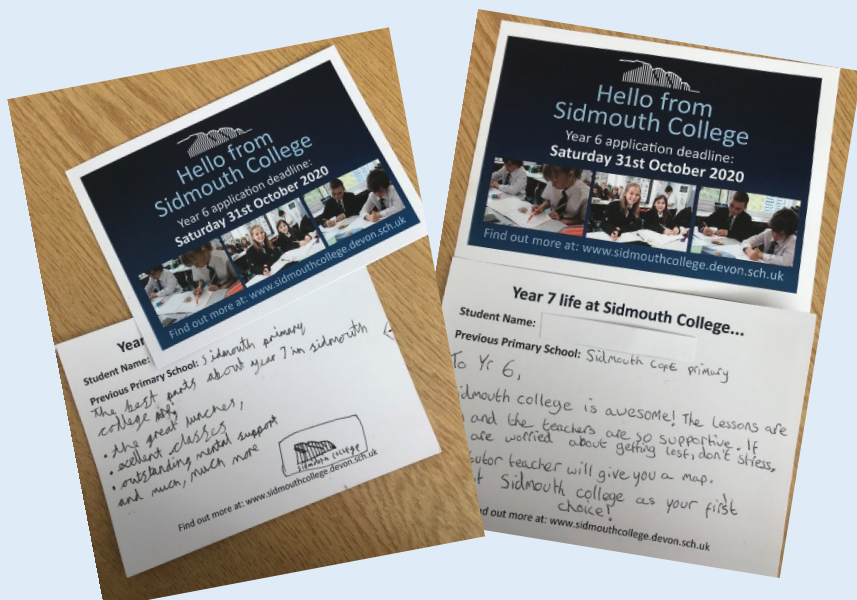 Hello from
Sidmouth College
Year 6 application deadline:
Saturday 31st October 2020
Find out more at: www.sidmouthcollege.devon.sch.uk
Year
Student Name:
Previous Primary School: Sidmouth primary
The best parts about year 7 in sidmouth
college
• the great lunches,
• exellent classes
• outstanding mental support
and much, much more
SIDMOUTH COLLEGE
Find out more at: www.sidmouthcollege.devon.sch.uk
Hello from
Sidmouth College
Year 6 application deadline:
Saturday 31st October 2020
Find out more at: www.sidmouthcollege.devon.sch.uk
Year 7 life at Sidmouth College...
Student Name:
Previous Primary School: Sidmouth CofE primary
To Yr 6,
idmouth college is awesome! The lessons are
and the teachers are so supportive. If
are worried about getting lost, don't stress,
tutor teacher will give you a map.
Sidmouth college as your first
choice!
nd out more at: www.sidmouthcollege.devon.sch.uk